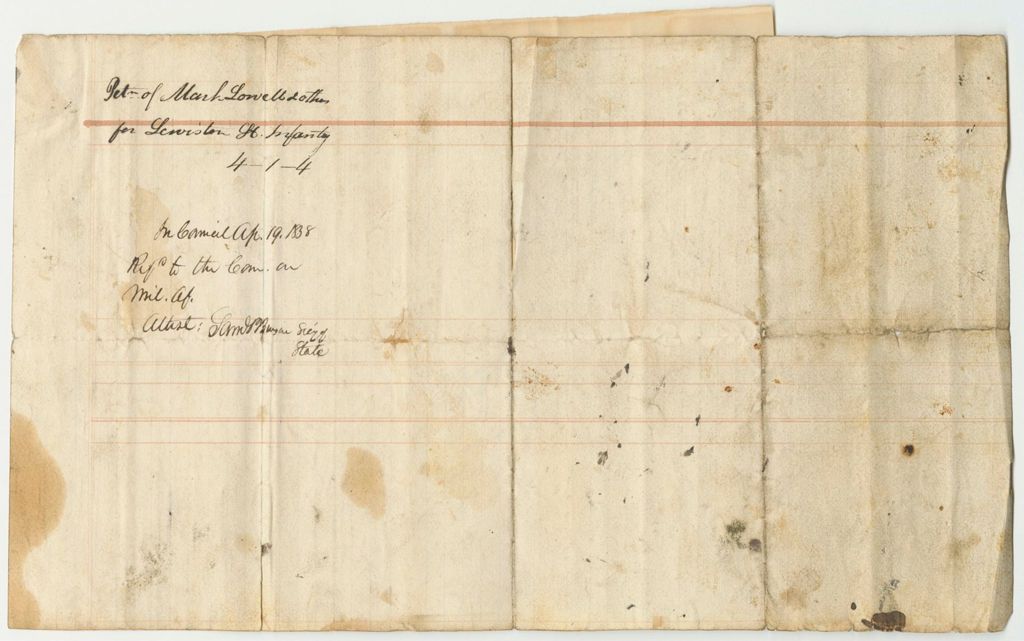 Petn of Mark Lowell & others
for Lewiston Lt. Infantry
4-1-4
In Council Ap. 19. 1838
Refd to the Com. on
Mil. Af.
Attest: Saml P Benson Secy of
State